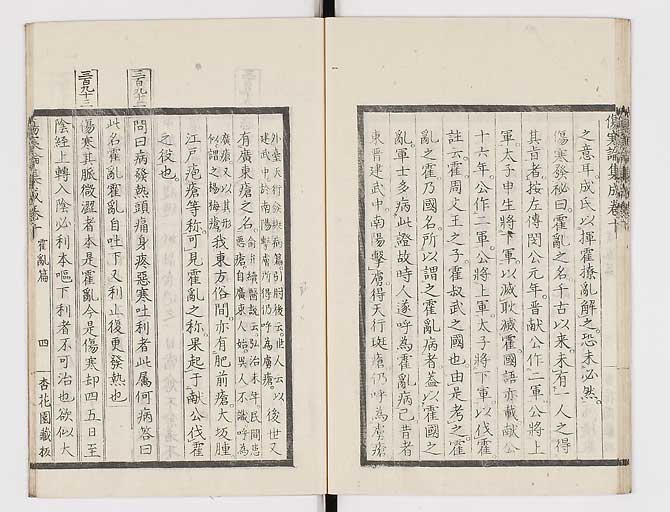 傷寒論集成卷十
之意耳成氏以揮霍撩亂解之恐未必然
傷寒發秘曰霍亂之名千古以來未有一人之得
其旨者按左傳閔公元年晉獻公作二軍公將上
軍太子申生將下軍以滅耿滅霍國語亦載獻公
十六年公作二軍公將上軍太子將下軍以伐霍
註云霍周文王之子霍叔武之國也由是考之霍
亂之霍乃國名所以謂之霍亂病者蓋以霍國之
亂軍士多病此證故時人遂呼為霍亂病已昔者
東晋建武中南陽擊虜得天行斑瘡仍呼為虜瘡
外臺天行發斑病篇引肘後云世人云以後世又
建武中於南陽擊虜所得仍呼為虜瘡
有廣東瘡之名俞弁續醫說云弘治末年民間患
惡瘡自廣東人始吳人不識呼為
廣瘡又以其形
似謂之楊梅瘡我東方俗間亦有肥前瘡大坂腫
江戶疤瘡等称可見霍亂之称果起于獻公伐霍
之役也
三百九十二
問曰病發熱頭痛身疼惡寒吐利者此屬何病答曰
此名霍亂霍亂自吐下又利止後更發熱也
三百九十三
傷寒其脈微澀者本是霍亂今是傷寒却四五日至
陰經上轉入陰必利本嘔下利者不可治也欲似大
傷寒論集成卷十
霍亂篇
四
杏花園藏板